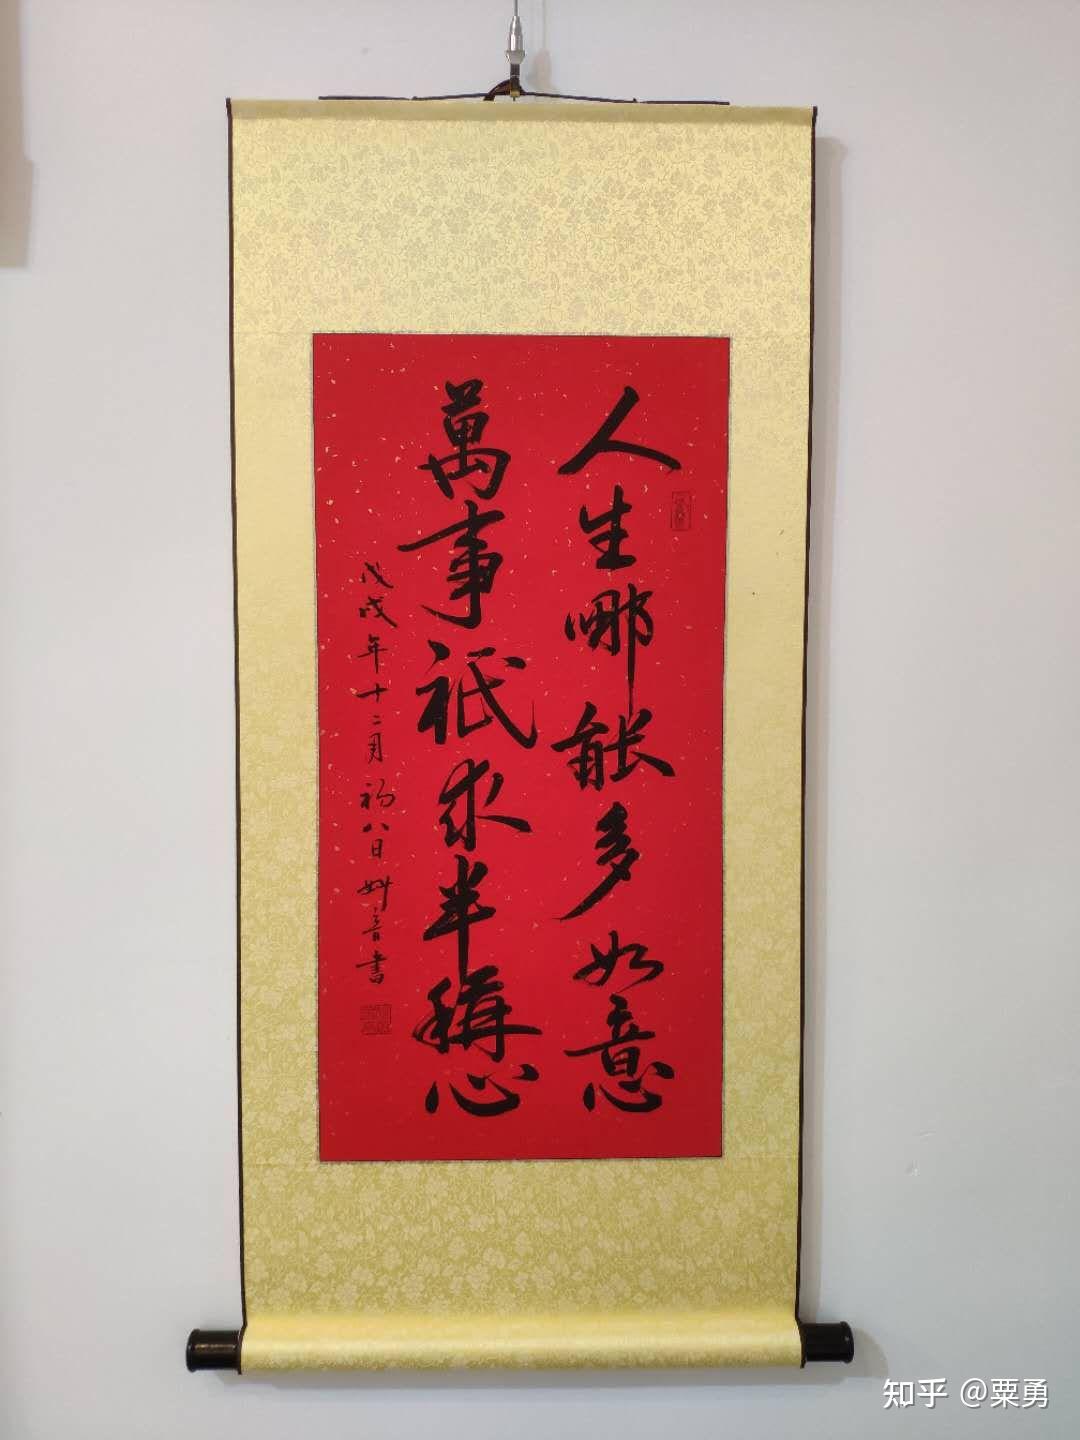 人生哪能多如意
萬事祇求半稱心
戊戌年十二月初八日妙音书
知乎 @粟勇